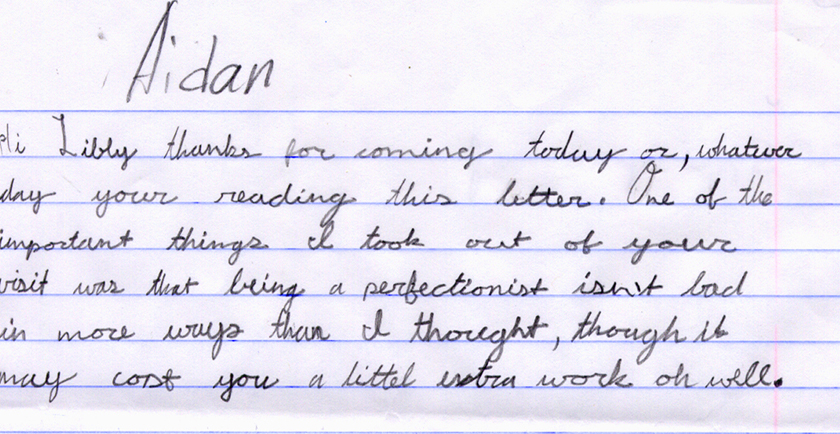 Aidan
Hi Libly thanks for coming today or, whatever
day your reading this letter. One of the
important things I took out of your
visit was that being a perfectionist isn't bad
in more ways than I thought, though it
may cost you a littel extra work oh well.